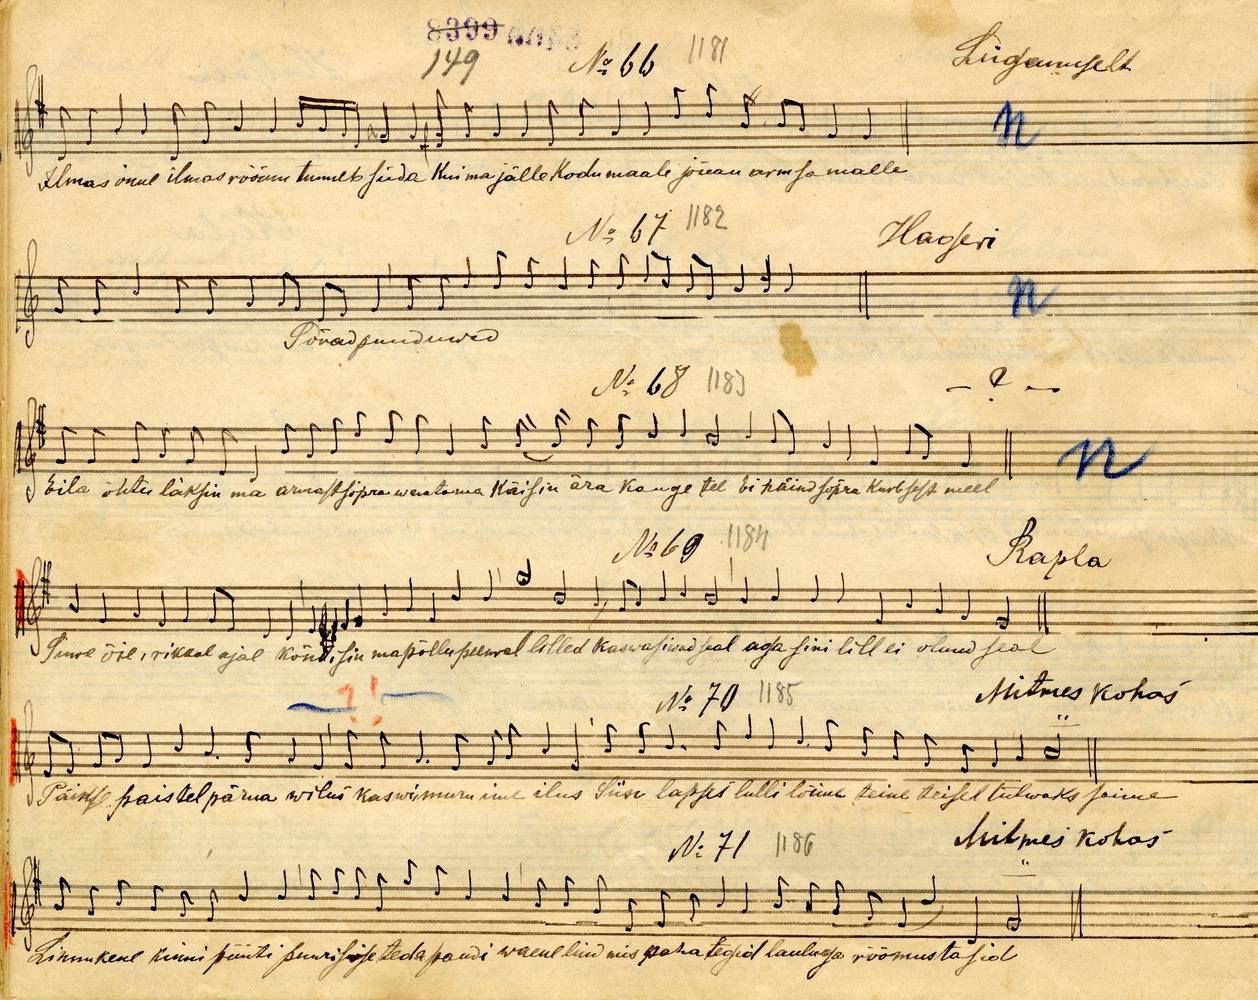 8399
149
№ 66 1181 Lüganuselt
n
Ilmas önne ilmas rööum tunneb süda Kui ma jälle Kodu maale jöuan armsa malle
№ 67 1182 Hageri
n
Pövad punduvad
№ 68 1183 — ? —
n
Eila öhtu läksin ma armast söpra waatama Käisin ära kauge tel Ei päind söpra kurb sest meel
№ 69 1184 Rapla
Suure öie, rikkal ajal köndisin ma pöllu peenral lilled kaswasiwad seal aga sini lill ei olnud seal
?!
№ 70 1185 Mitmes kohas
Päikse paistel pärna wilus kaswis muru ime ilus Siin lapsed lulli löime teine teisel tutwaks saime
№ 71 1186 Mitmes kohas
Linnukene kinni püüti puuri sisse teda pandi waene lind mis paha tegid lauluga röömustasid